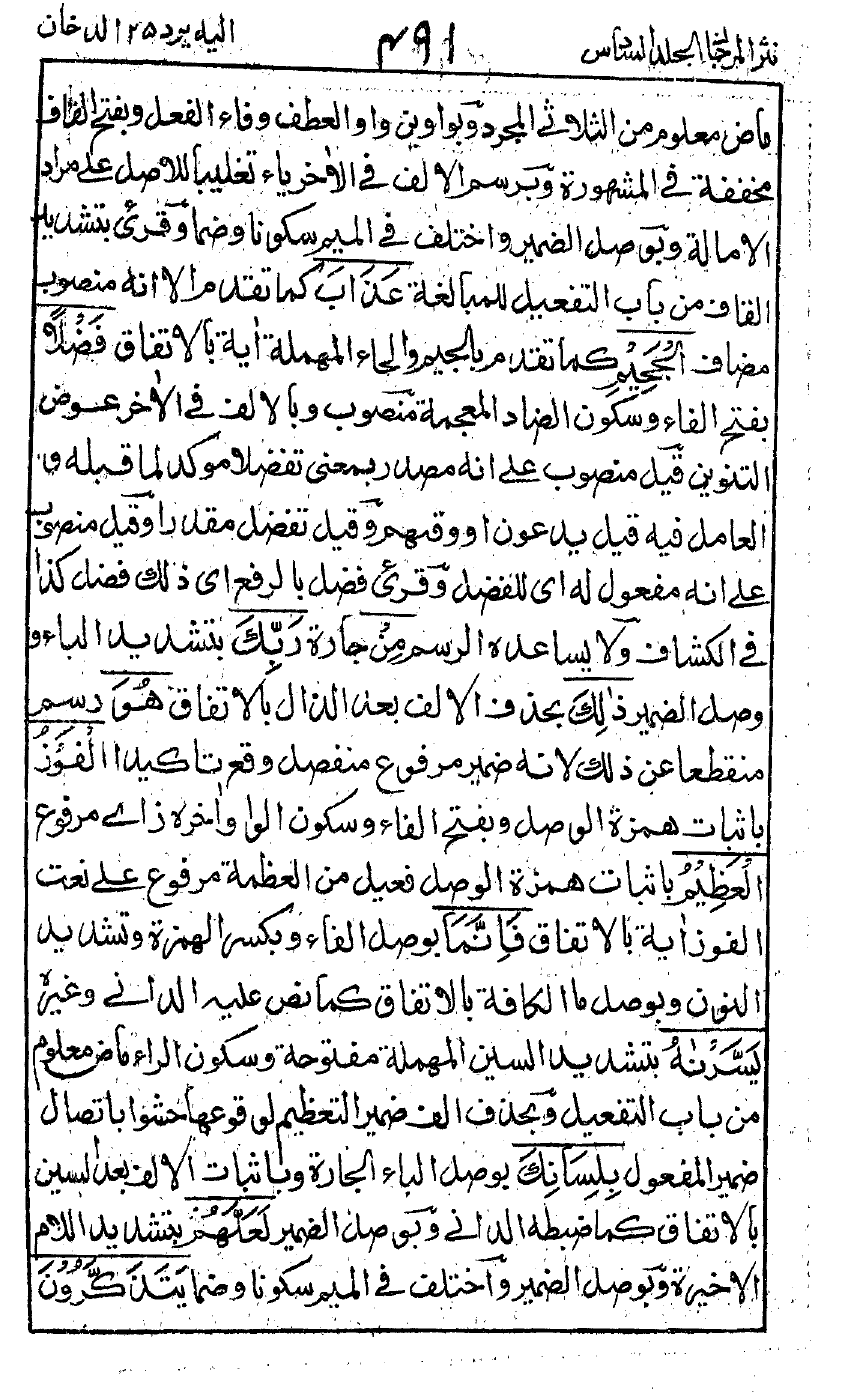 نثر المرجان المجلد السادس ٤٩١ اليه يرد ٢٥ الدخان
ماض معلوم من الثلاثي المجرد وبواوين واو العطف وفاء الفعل وبفتح القاف
مخففة في المشهورة وبرسم الالف في الاخر ياء تغليبا للاصل على مراد
الامالة وبوصل الضمير واختلف في الميم سكونا وضما وقرئ بتشديد
القاف من باب التفعيل للمبالغة عَذَابَ كما تقدم الا انه منصوب
مضاف الْجَحِيْمِ كما تقدم بالجيم والحاء المهملة اٰية بالاتفاق فَضْلًا
بفتح الفاء وسكون الضاد المعجمة منصوب وبالالف في الاخر عوض
التنوين قيل منصوب على انه مصدر بمعنى تفضلا موكد لما قبله و
العامل فيه قيل يدعون او وقىهم وقيل تفضل مقدرا وقيل منصوب
على انه مفعول له اى للفضل وقرئ فضل بالرفع اى ذلك فضل كذا
في الكشاف ولا يساعده الرسم مِنْ جارة رَبِّكَ بتشديد الباء و
وصل الضمير ذٰلِكَ بحذف الالف بعد الذال بالاتفاق هُوَ رسم
منقطعا عن ذلك لانه ضمير مرفوع منفصل وقع تاكيدا الْفَوْزُ
باثبات همزة الوصل وبفتح الفاء وسكون الواو واٰخره زاء مرفوع
الْعَظِيْمُ باثبات همزة الوصل فعيل من العظمة مرفوع على نعت
الفوز اٰية بالاتفاق فَاِنَّمَا بوصل الفاء وبكسر الهمزة وتشديد
النون وبوصل ما الكافة بالاتفاق كما نص عليه الداني وغيره
يَسَّرْنٰهُ بتشديد السين المهملة مفتوحة وسكون الراء ماض معلوم
من باب التفعيل وبحذف الف ضمير التعظيم لوقوعها حشوا باتصال
ضمير المفعول بِلِسَانِكَ بوصل الباء الجارة وباثبات الالف بعد السين
بالاتفاق كما ضبطه الداني وبوصل الضمير لَعَلَّهُمْ بتشديد اللام
الاخيرة وبوصل الضمير واختلف في الميم سكونا وضما يَتَذَكَّرُوْنَ